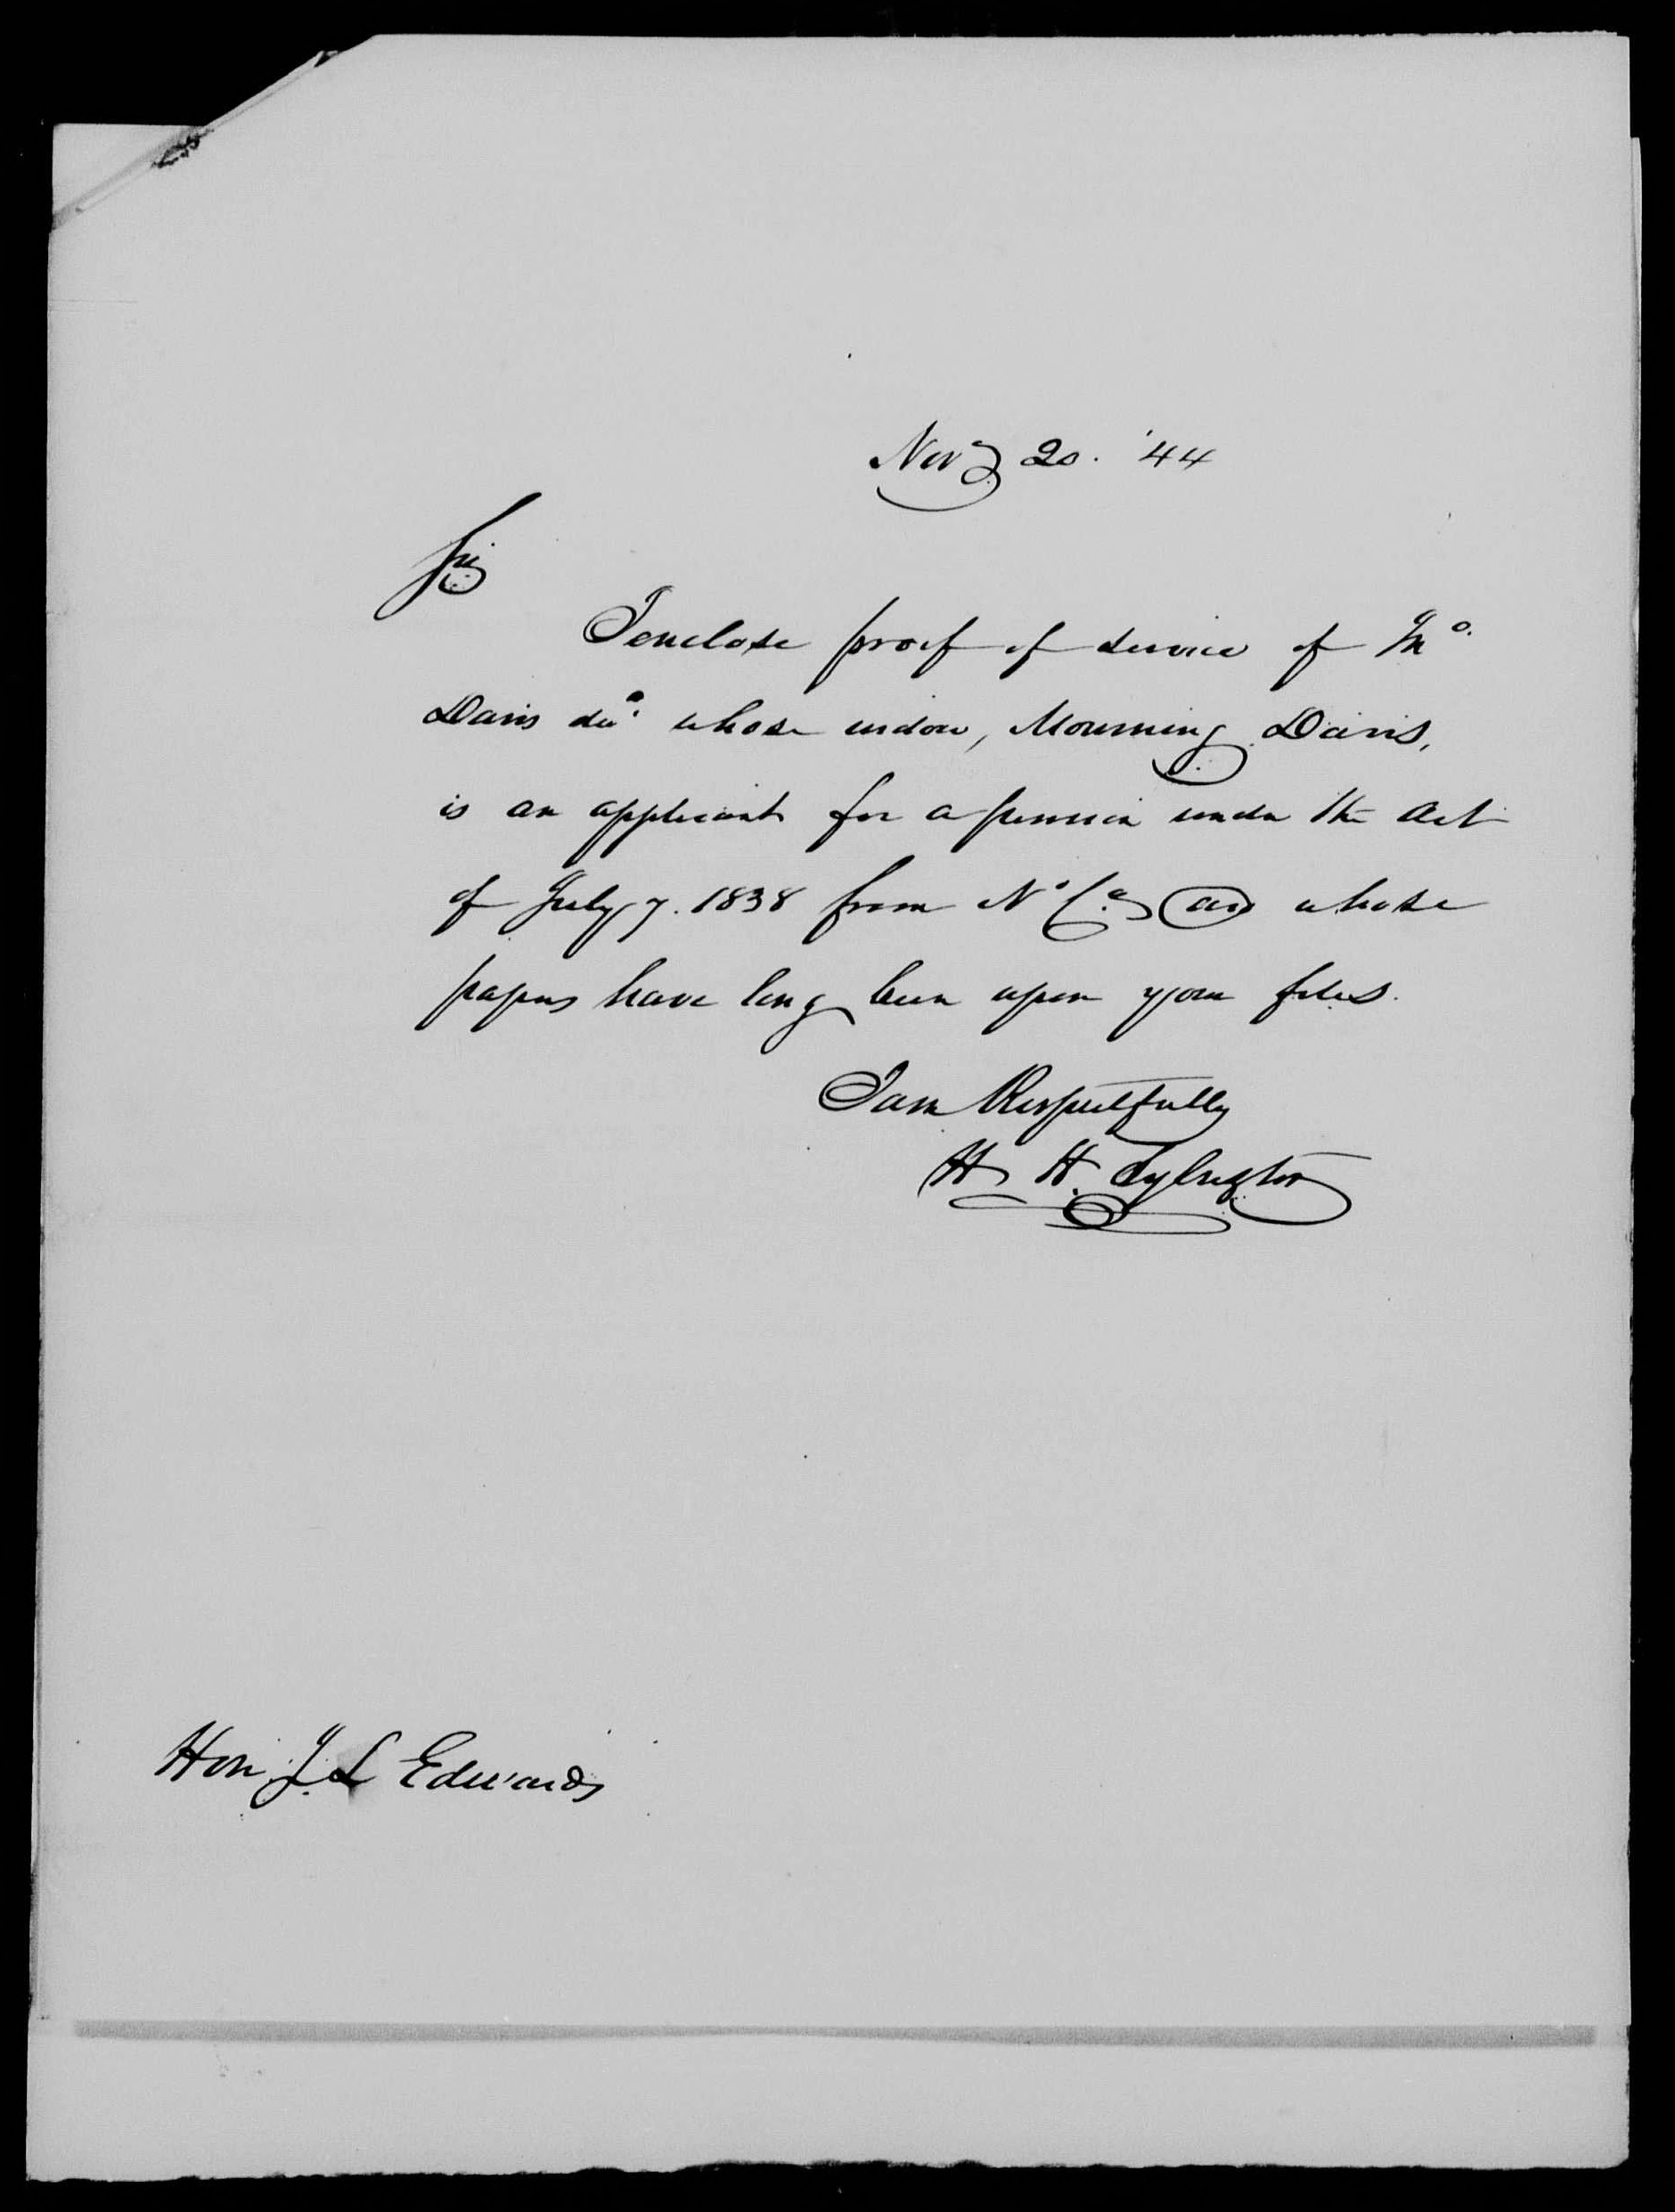 Novr 20. '44
Sir
I enclose proof of service of Jno.
Davis decd. whose widow, Mourning Davis,
is an applicant for a pension under the Act
of July 7. 1838 from No Ca. and whose
papers have long been upon your files.
I am Respectfully
H H.
Hon. J. L Edwards